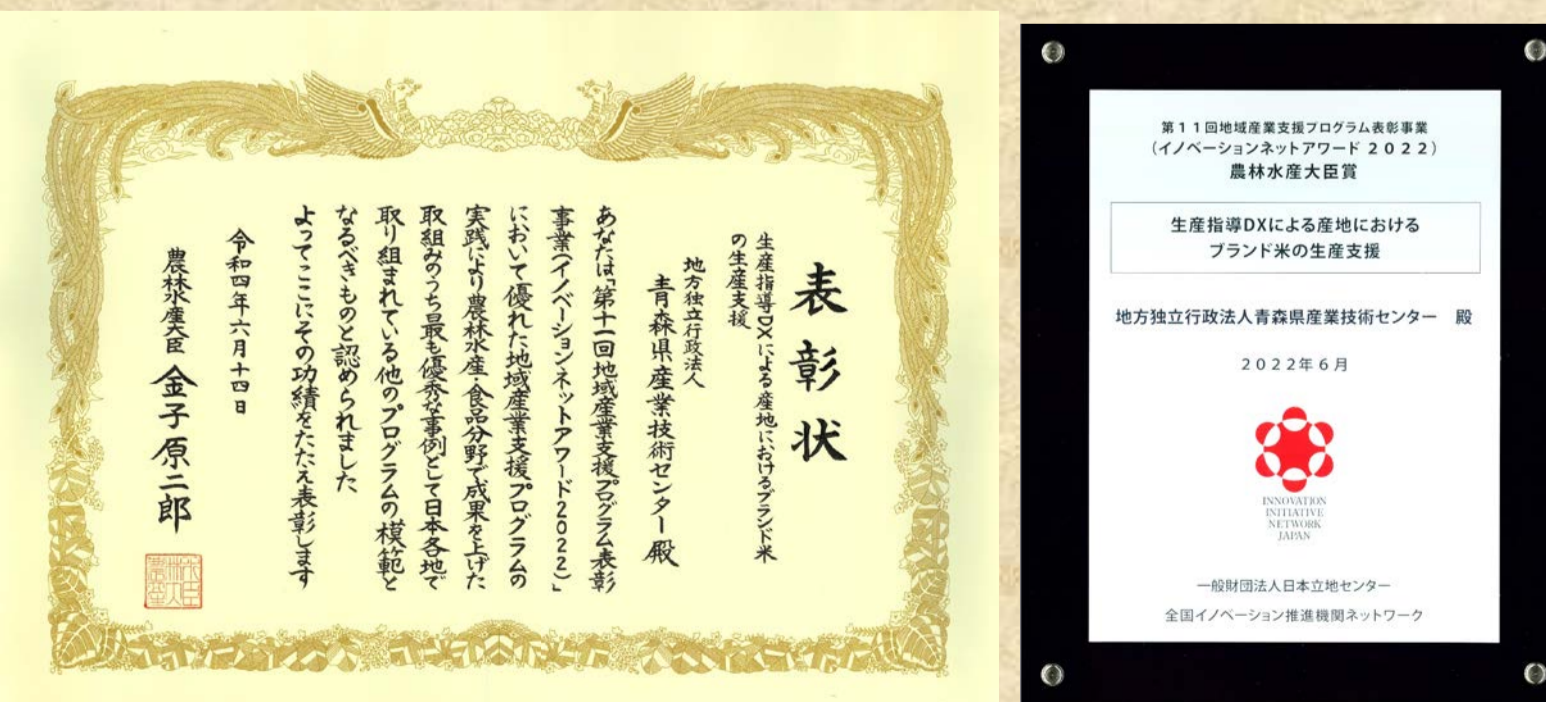 表彰状
生産指導DXによる産地におけるブランド米
の生産支援
地方独立行政法人
青森県産業技術センター 殿
あなたは「第十一回地域産業支援プログラム表彰
事業(イノベーションネットアワード2022)」
において優れた地域産業支援プログラムの
実践により農林水産・食品分野で成果を上げた
取組みのうち最も優秀な事例として日本各地で
取り組まれている他のプログラムの模範と
なるべきものと認められました
よってここにその功績をたたえ表彰します
令和四年六月十四日
農林水産大臣 金子原二郎
第11回地域産業支援プログラム表彰事業
(イノベーションネットアワード 2022)
農林水産大臣賞
生産指導DXによる産地における
ブランド米の生産支援
地方独立行政法人青森県産業技術センター 殿
2022年6月
INNOVATION
INITIATIVE
NETWORK
JAPAN
一般財団法人日本立地センター
全国イノベーション推進機関ネットワーク